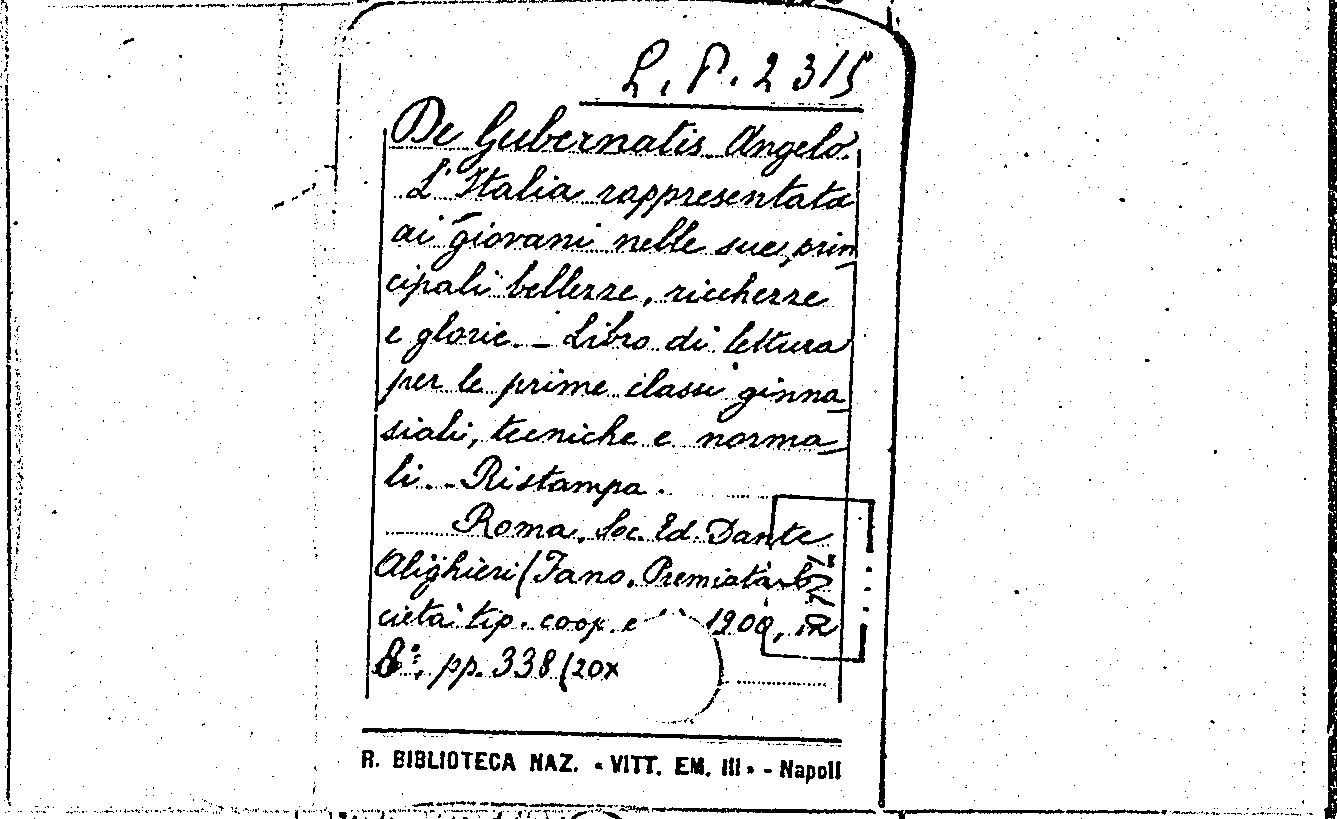 L. P. 2315
De Gubernatis Angelo.
L'Italia rappresentata
ai giovani nelle sue prin
cipali bellezze, ricchezze
e glorie. - Libro di lettura
per le prime classi ginna
siali, tecniche e norma
li. - Ristampa.
Roma, Soc. Ed. Dante
Alighieri (Fano, Premiata So
cietà tip. coop. 1900, in
8°, pp. 338 (20x
R. BIBLIOTECA NAZ. « VITT. EM. III » - Napoli